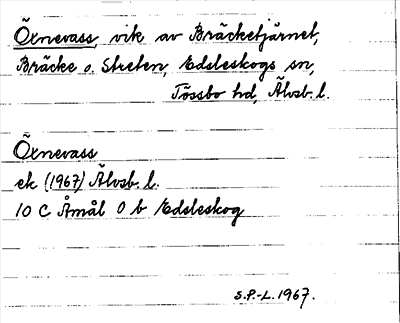 Öxnevass, vik av Bräcketjärnet,
Bräcke o. Streten, Edsleskogs sn,
Tössbo hd, Älvsb. l.
Öxnevass
ek (1967) Älvsb. l.
10 C Åmål 0 b Edsleskog
S.P.-L. 1967.